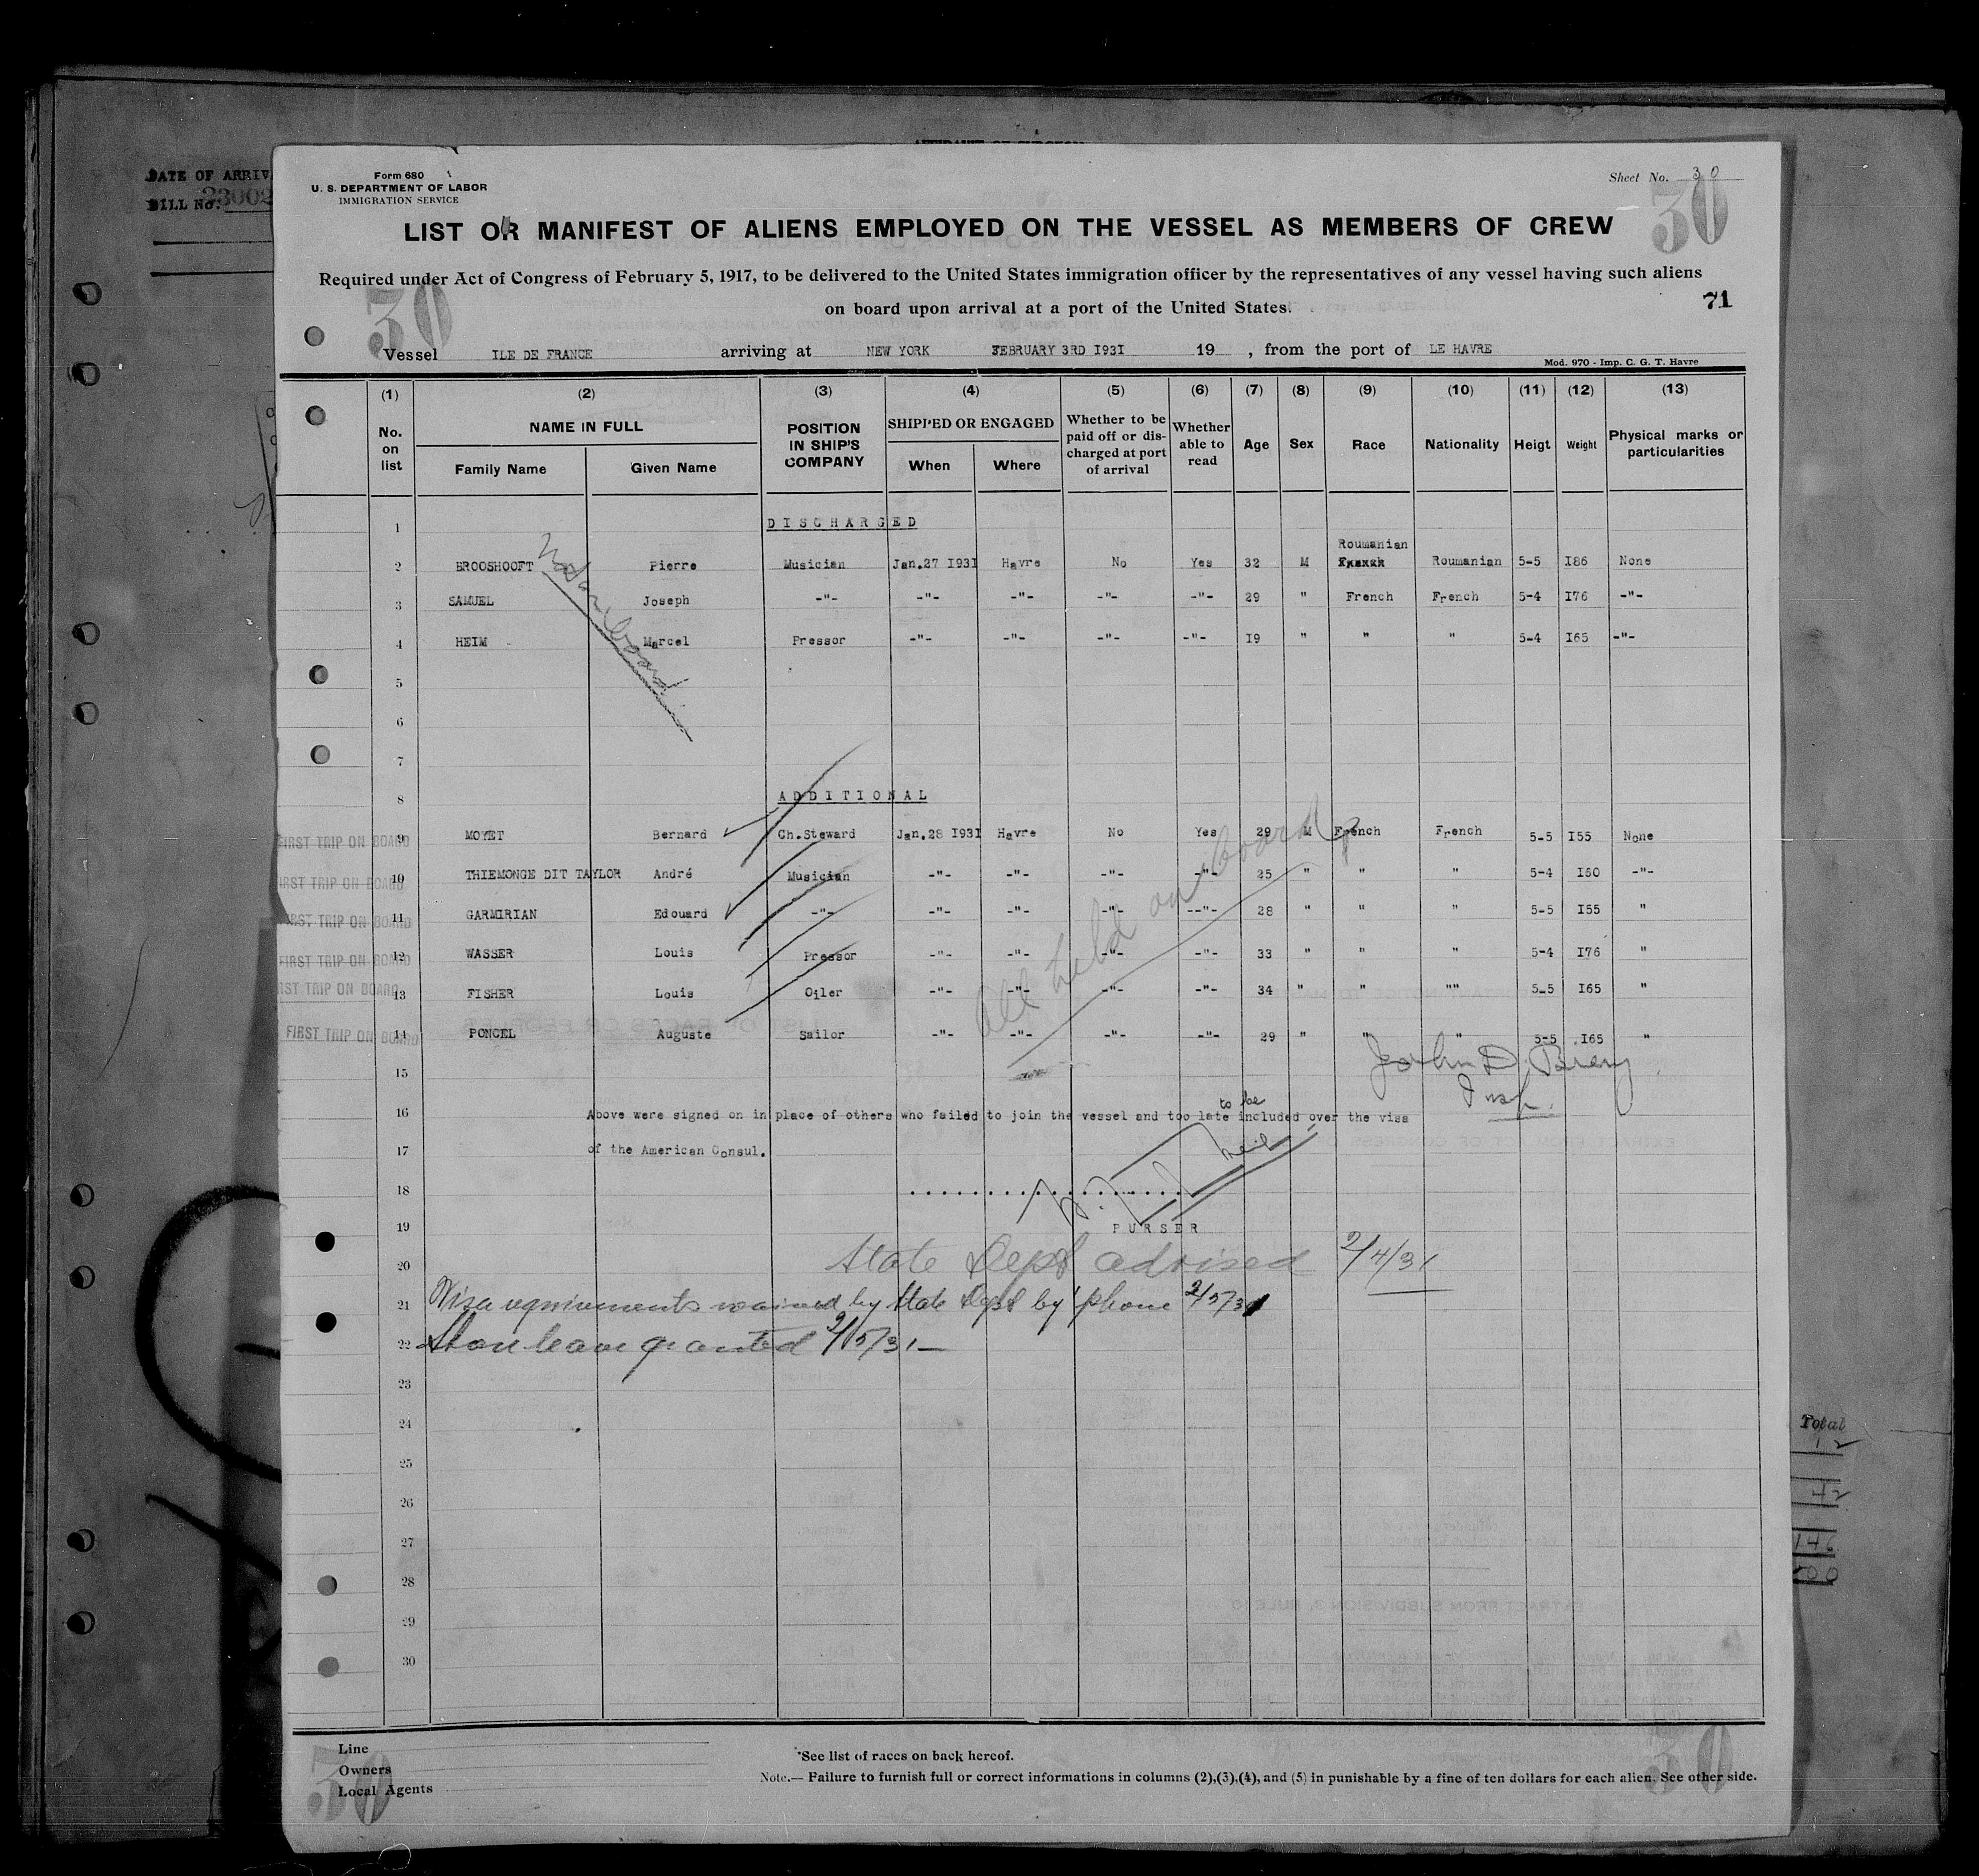 DATE OF ARRIV
BILL No. 23002
Form 680
U. S. DEPARTMENT OF LABOR
IMMIGRATION SERVICE
Sheet No. 30
30
LIST OR MANIFEST OF ALIENS EMPLOYED ON THE VESSEL AS MEMBERS OF CREW
Required under Act of Congress of February 5, 1917, to be delivered to the United States immigration officer by the representatives of any vessel having such aliens
on board upon arrival at a port of the United States.
71
30
Vessel ILE DE FRANCE arriving at NEW YORK FEBRUARY 3RD I93I 19 , from the port of LE HAVRE
Mod. 970 - Imp. C. G. T. Havre
(1) (2) (3) (4) (5) (6) (7) (8) (9) (10) (11) (12) (13)
No. on list NAME IN FULL Family Name Given Name POSITION IN SHIP'S COMPANY SHIPPED OR ENGAGED When Where Whether to be paid off or discharged at port of arrival Whether able to read Age Sex Race Nationality Heigt Weight Physical marks or particularities
1 DISCHARGED
Roumanian
2 BROOSHOOFT Pierre Musician Jan.27 I93I Havre No Yes 32 M Roumanian 5-5 I86 None
3 SAMUEL Joseph -"- -"- -"- -"- -"- 29 " French French 5-4 I76 -"-
4 HEIM Marcel Pressor -"- -"- -"- -"- I9 " " " 5-4 I65 -"-
Not on board
5
6
7
8 ADDITIONAL
FIRST TRIP ON BOARD 9 MOYET Bernard Ch.Steward Jan.28 I93I Havre No Yes 29 M French French 5-5 I55 None
FIRST TRIP ON BOARD 10 THIEMONGE DIT TAYLOR André Musician -"- -"- -"- -"- 25 " " " 5-4 I50 -"-
FIRST TRIP ON BOARD 11 GARMIRIAN Edouard -"- -"- -"- -"- --"- 28 " " " 5-5 I55 "
FIRST TRIP ON BOARD 12 WASSER Louis Pressor -"- -"- -"- -"- 33 " " " 5-4 I76 "
FIRST TRIP ON BOARD 13 FISHER Louis Oiler -"- -"- -"- -"- 34 " " "" 5-5 I65 "
FIRST TRIP ON BOARD 14 PONCEL Auguste Sailor -"- -"- -"- -"- 29 " " " 5-5 I65 "
All held on board
15
John D.
Insp.
to be
16 Above were signed on in place of others who failed to join the vessel and too late included over the visa
17 of the American Consul.
18
19 PURSER
20 State Dept advised 2/4/31
21 Visa requirements waived by State Dept by phone 2/5/31
22 Shore leave granted 2/5/31
23
24
25
26
27
28
29
30
Total
12
42
146
Line
Owners
Local Agents
30
*See list of races on back hereof.
Note.— Failure to furnish full or correct informations in columns (2),(3),(4), and (5) in punishable by a fine of ten dollars for each alien. See other side.
30